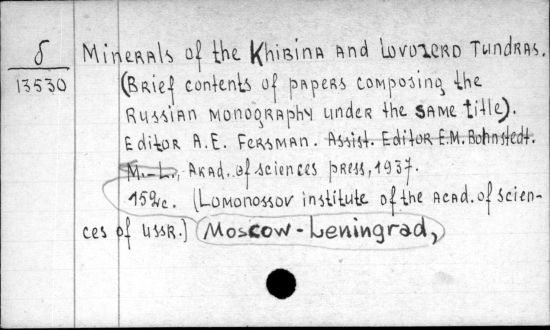 δ
13530
Minerals of the Khibina and Lovozero Tundras.
(Brief contents of papers composing the
Russian monography under the same title).
Editor A.E. Fersman. Assist. Editor E.M. Bohnstedt.
M.-L., Akad. of sciences press, 1937.
152c. (Lomonossov institute of the Acad. of Scien-
ces of USSR.) Moscow-Leningrad,